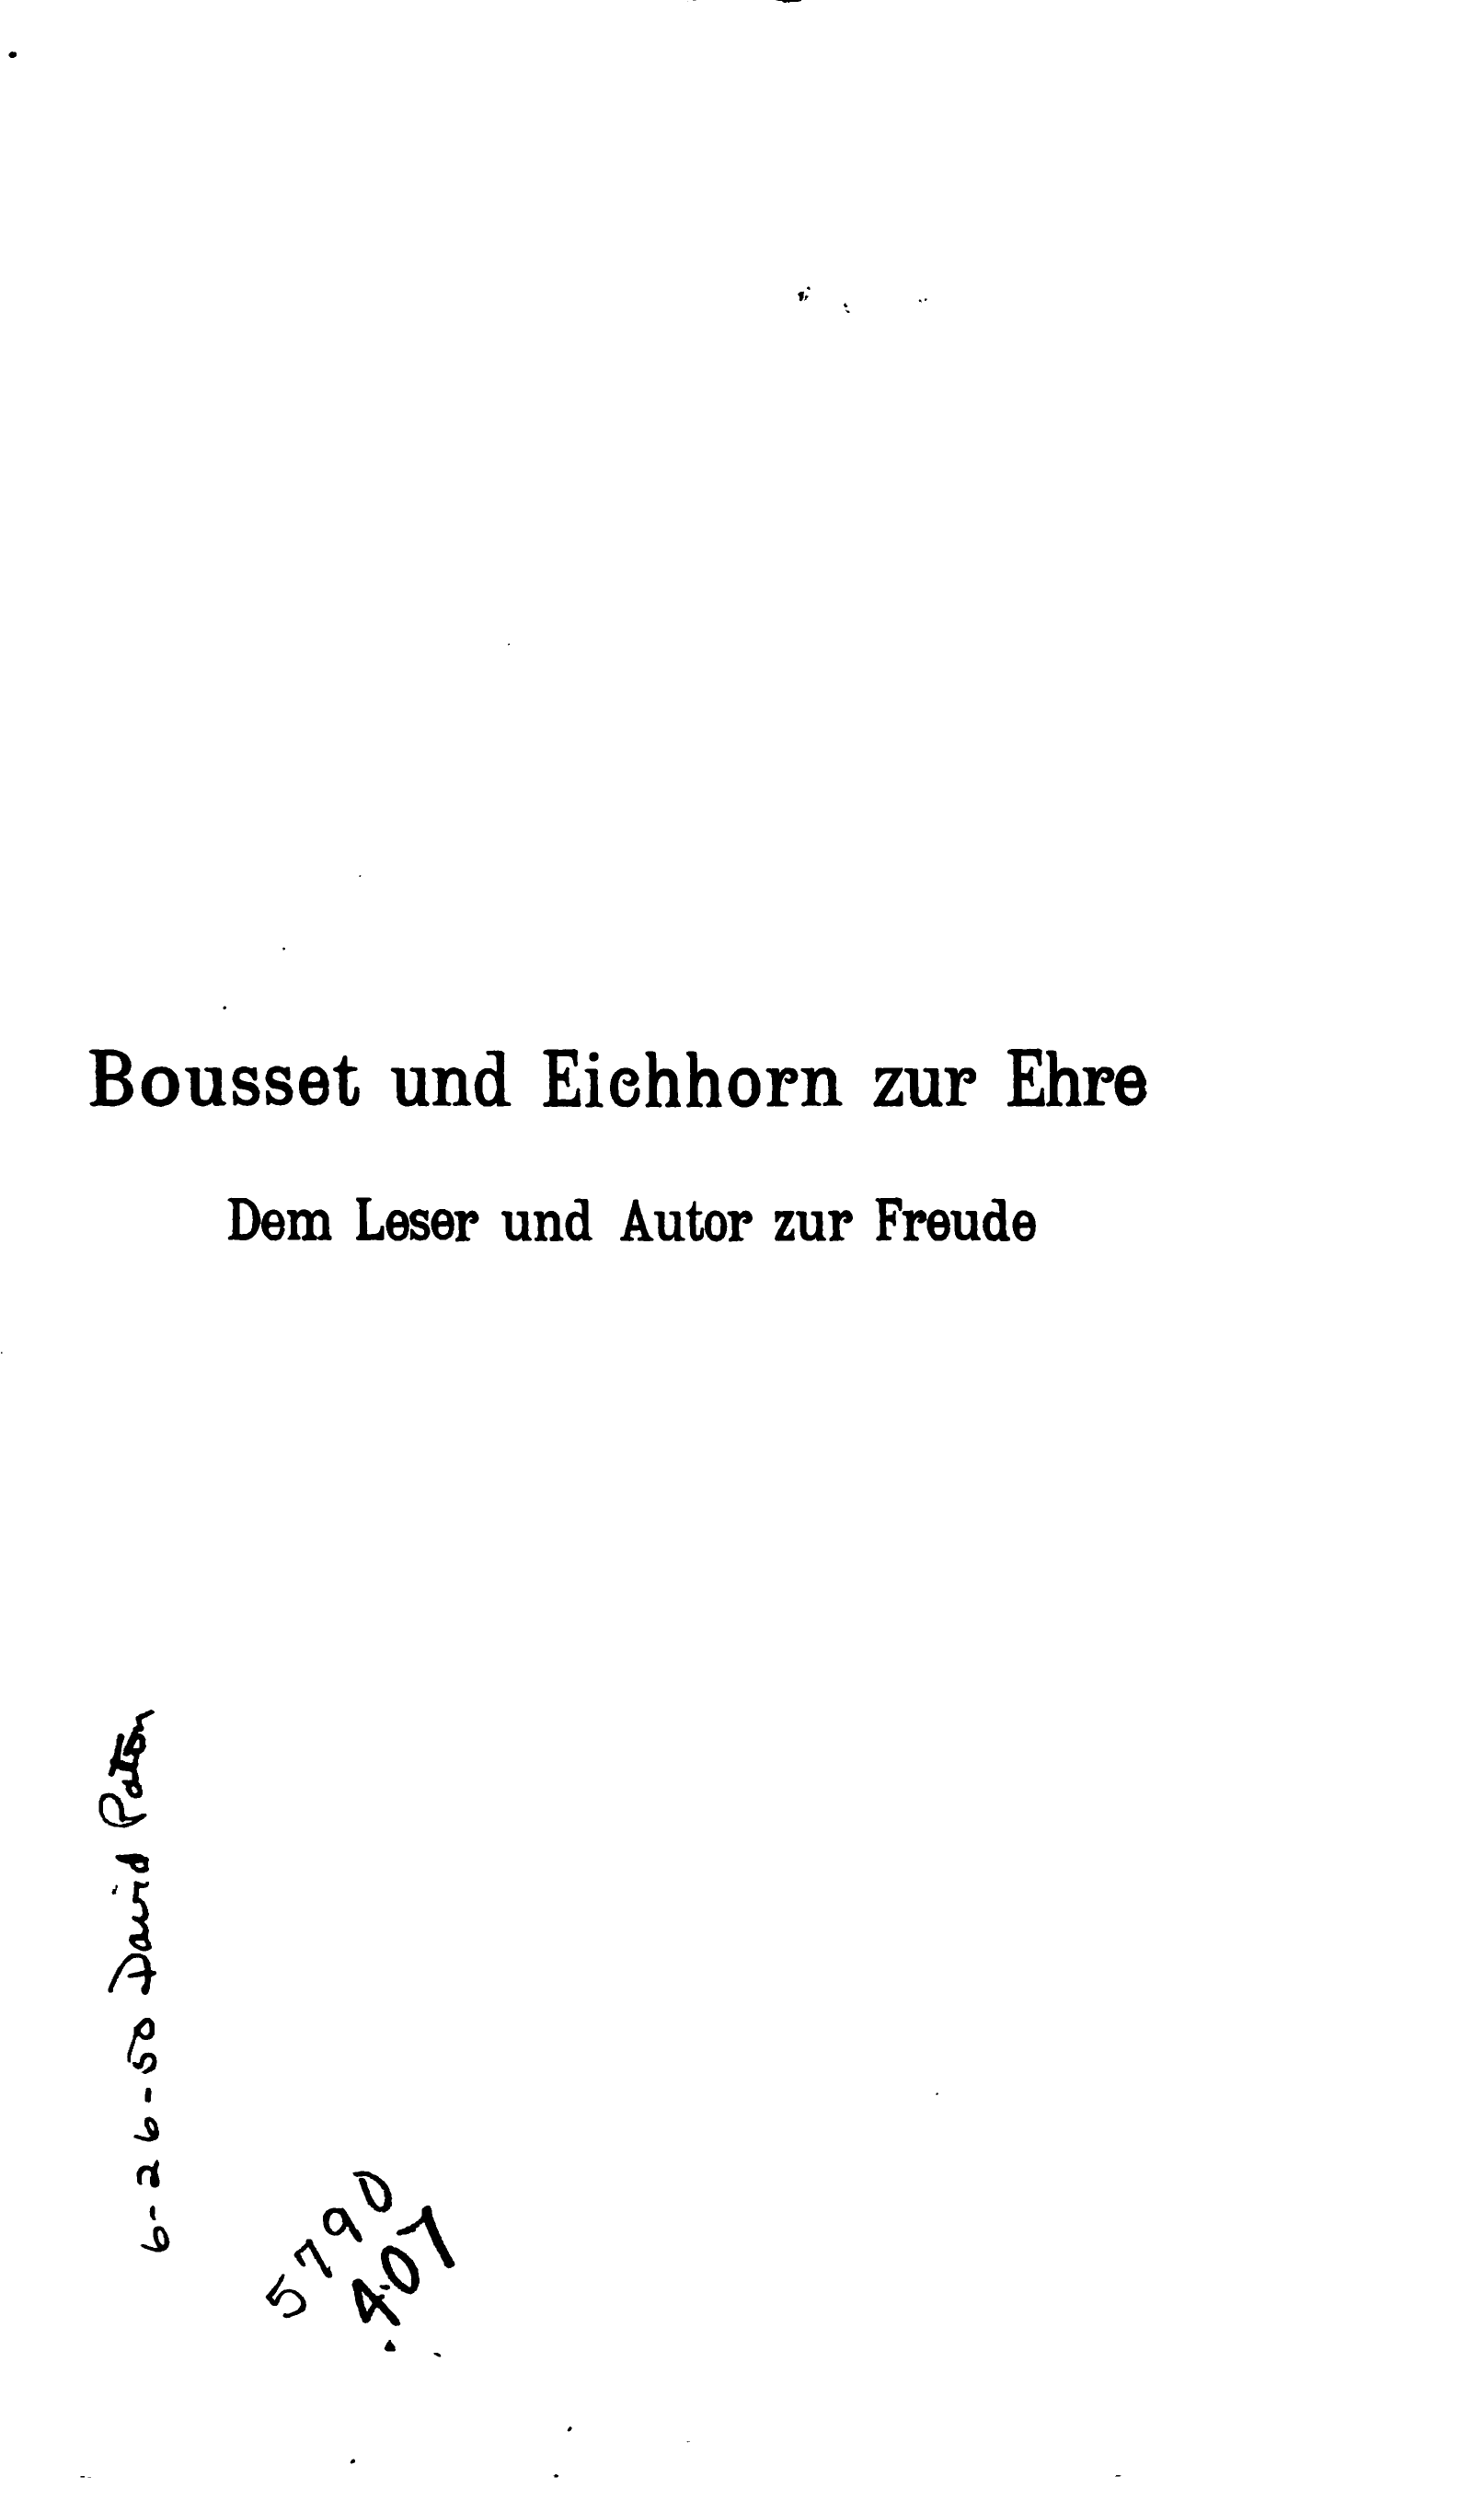 Bousset und Eichhorn zur Ehre
Dem Leser und Autor zur Freude
6-26-50 David
5790
407